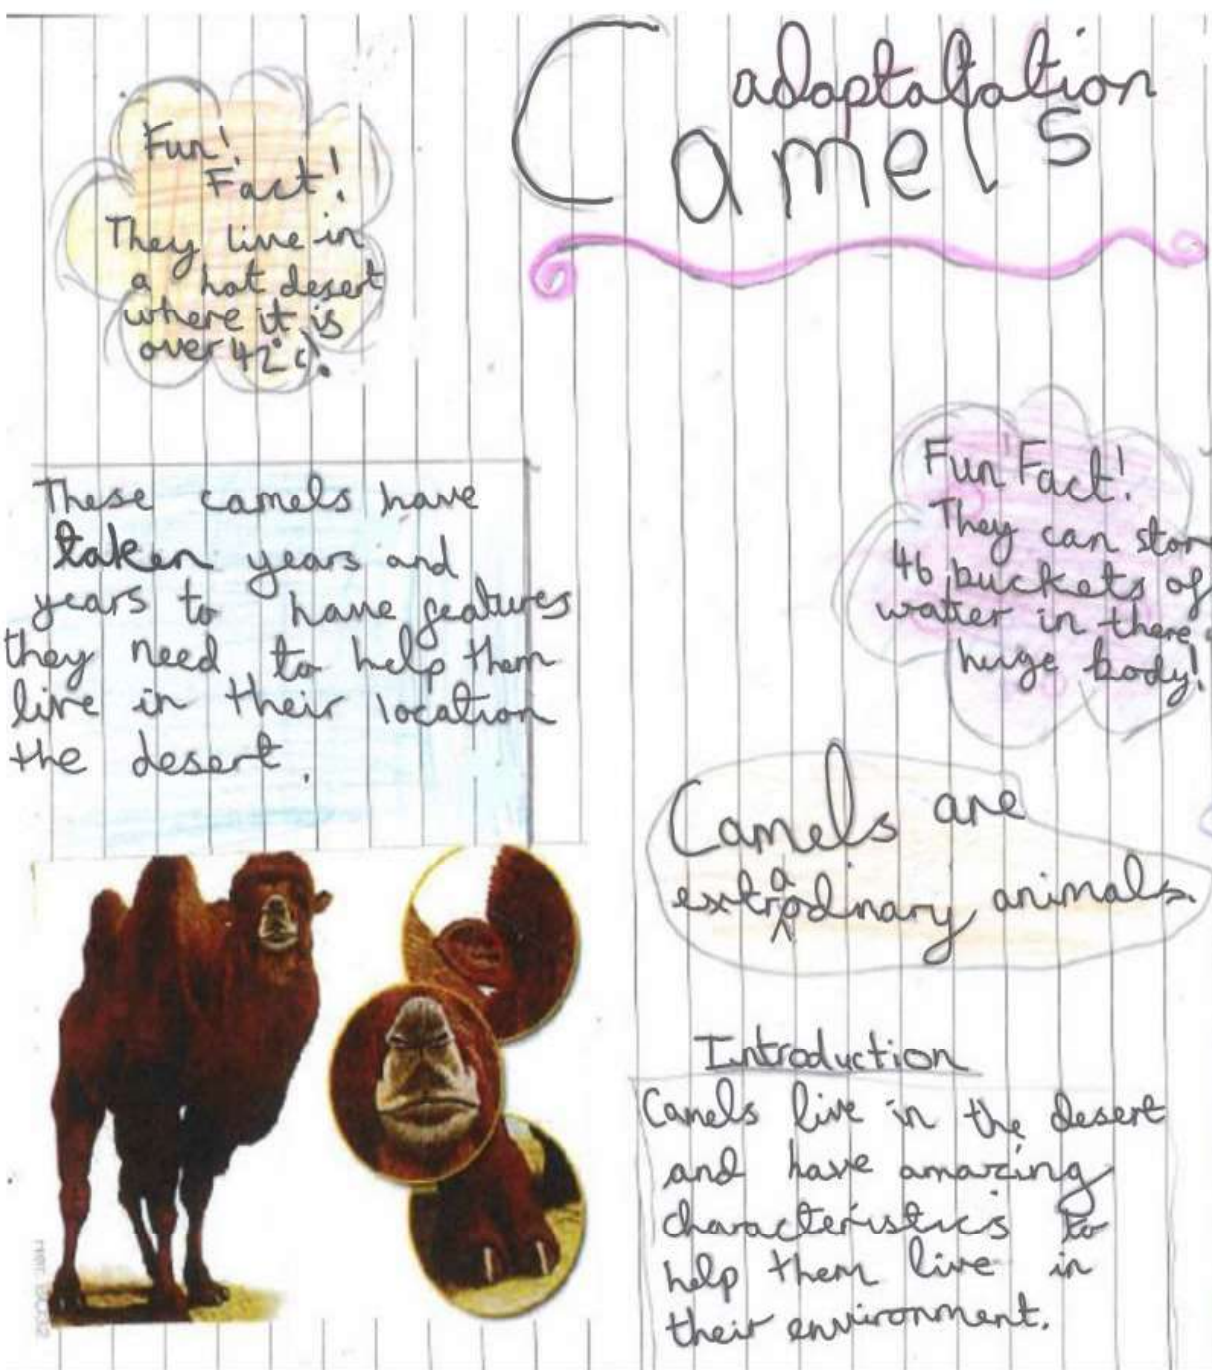 adaptatation
Camels
Fun!
Fact!
They live in
a hot desert
where it is
over 42°c!.
These camels have
taken years and
years to have features
they need to help them
live in their location
the desert.
Fun Fact!
They can stor
46 buckets of
water in there
huge body!
Camels are
extraodinary animals.
Introduction
Camels live in the desert
and have amazing
characteristics to
help them live in
their environment.